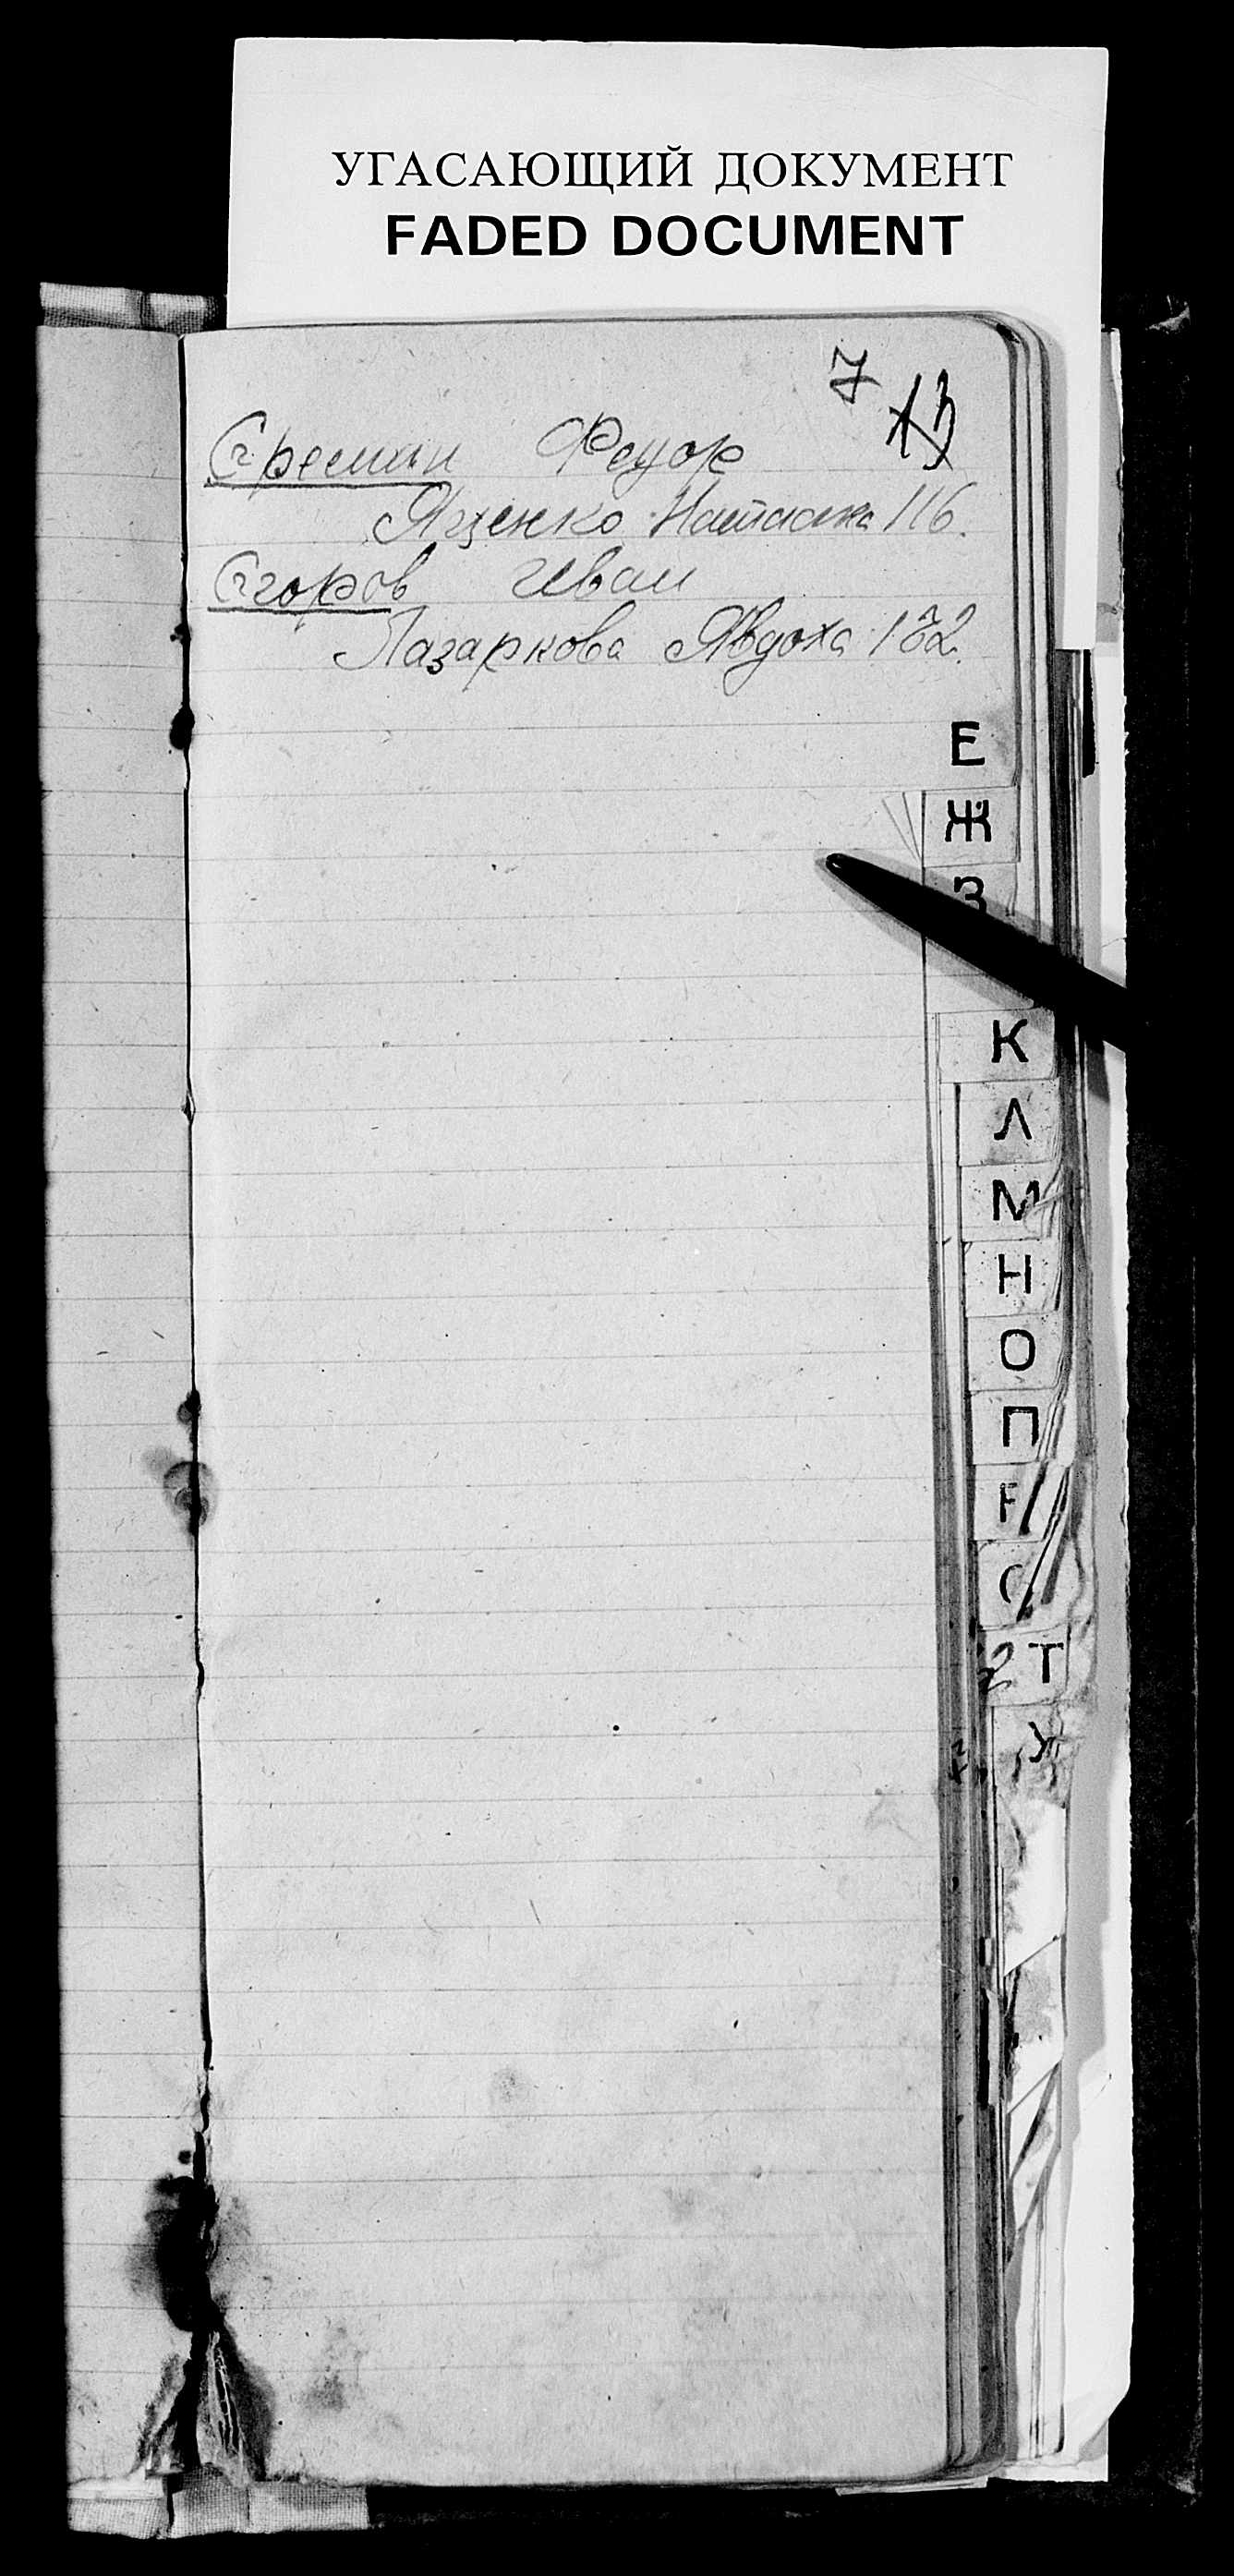 УГАСАЮЩИЙ ДОКУМЕНТ
FADED DOCUMENT
7
13
Еремин Федор
Яценко Наталка 116.
Егоров Иван
Лазаркова Явдоха 182.
Е
Ж
З
К
Л
М
Н
О
П
Р
С
Т
У